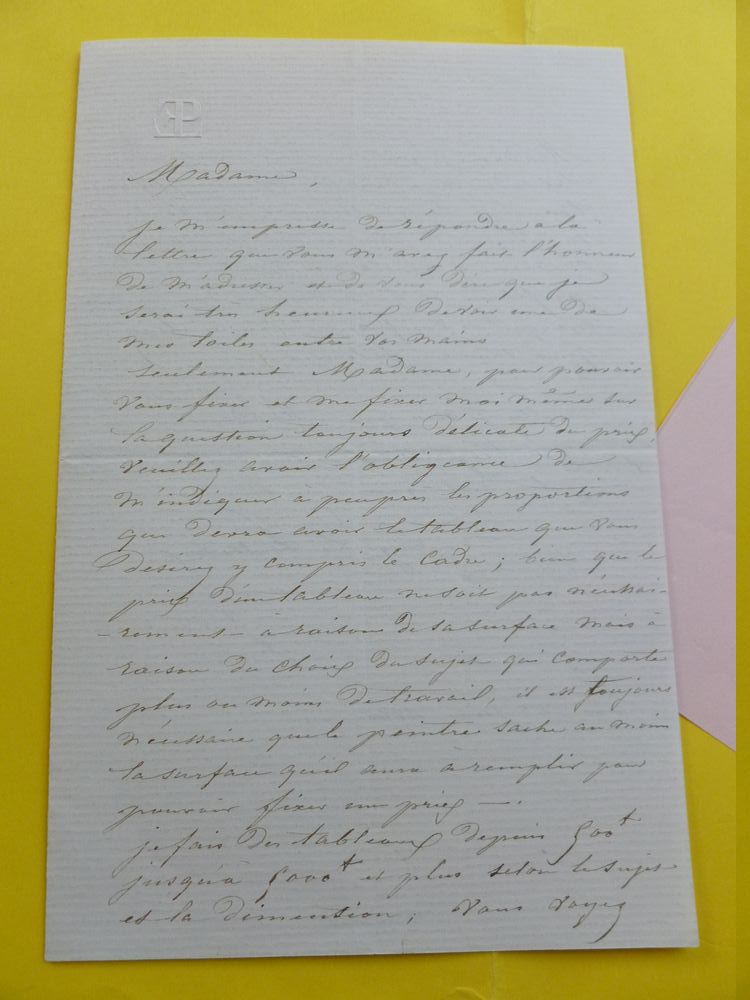 Madame,
je m'empresse de répondre à la
lettre que vous m'avez fait l'honneur
de m'adresser et de vous dire que je
serai très heureux de voir une de
mes toiles entre vos mains
seulement Madame, pour pouvoir
vous fixer et me fixer moi même sur
la question toujours délicate du prix,
veuillez avoir l'obligeance de
m'indiquer à peu près les proportions
que devra avoir le tableau que vous
désirez y compris le cadre ; bien que le
prix d'un tableau ne soit pas nécessai-
-rement à raison de sa surface mais à
raison du choix du sujet qui comporte
plus ou moins de travail, il est toujours
nécessaire que le peintre sache au moins
la surface qu'il aura à remplir pour
pouvoir fixer un prix —.
je fais des tableaux depuis 500f
jusqu'à 5000f et plus selon le sujet
et la dimention ; vous voyez